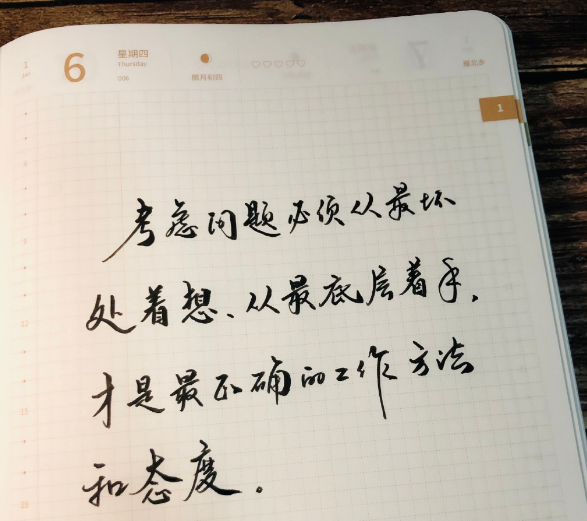 1
6
星期四
Thursday
006
腊月初四
1
考虑问题必须从最坏
处着想、从最底层着手,
才是最正确的工作方法
和态度。